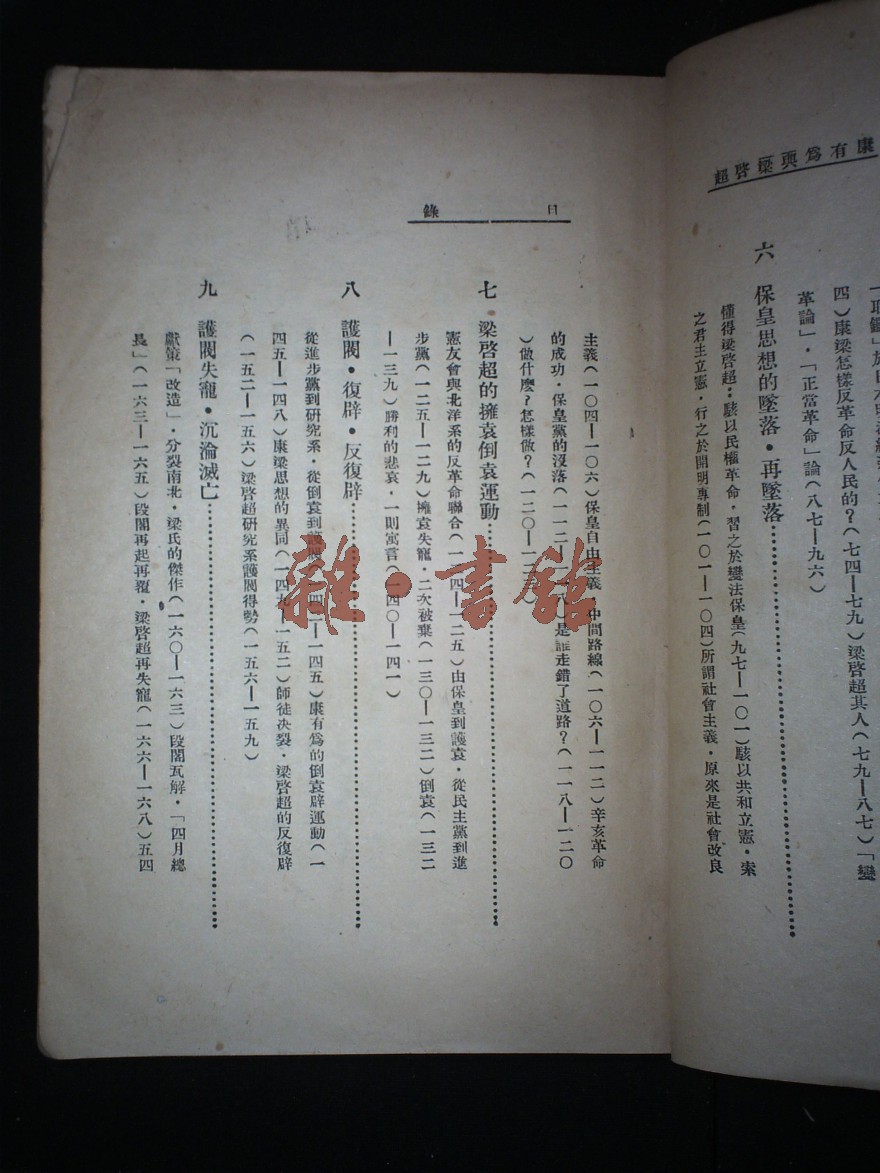 康有爲與梁啓超
四）康梁怎樣反革命反人民的？（七四—七九）梁啓超其人（七九—八七）「變
革論」・「正當革命」論（八七—九六）
六　保皇思想的墜落・再墜落
懂得梁啓超：駭以民權革命，習之於變法保皇（九七—一〇一）駭以共和立憲・索
之君主立憲・行之於開明專制（一〇一—一〇四）所謂社會主義・原來是社會改良
目　錄
主義（一〇四—一〇六）保皇自由主義・中間路線（一〇六—一一二）辛亥革命
的成功・保皇黨的沒落（一一二—一一八）是誰走錯了道路？（一一八—一二〇
）做什麼？怎樣做？（一二〇—一二
七　梁啓超的擁袁倒袁運動
憲友會與北洋系的反革命聯合（一二四—一二五）由保皇到護袁・從民主黨到進
步黨（一二五—一二九）擁袁失寵・二次被棄（一三〇—一三二）倒袁（一三二
—一三九）勝利的悲哀・一則寓言（一四〇—一四一）
八　護閥・復辟・反復辟
從進步黨到研究系・從倒袁到護閥（一四二—一四五）康有爲的倒袁辟運動（一
四五—一四八）康梁思想的異同（一四九—一五二）師徒決裂・梁啓超的反復辟
（一五二—一五六）梁啓超研究系護閥得勢（一五六—一五九）
九　護閥失寵・沉淪滅亡
獻策「改造」・分裂南北・梁氏的傑作（一六〇—一六三）段閣瓦解・「四月總
長」（一六三—一六五）段閣再起再覆・梁啓超再失寵（一六六—一六八）五四
雜・書館